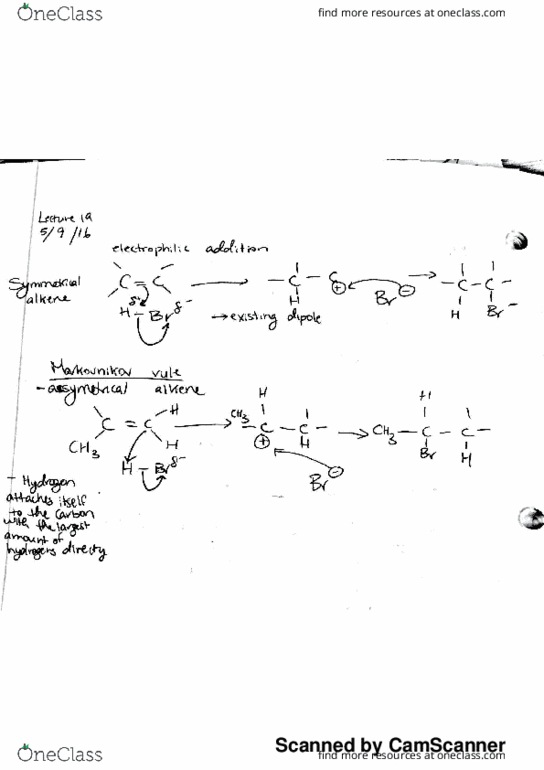 OneClass
find more resources at oneclass.com
Lecture 19
5/9/16
electrophilic addition
Symmetrical
alkene
C = C
H - Br δ-
→ existing dipole
- C - C ⊕
H
Br ⊖
- C - C -
H Br
Markovnikov rule
- assymetrical alkene
C = C - H
CH3 H
H - Br δ-
H
CH3 - C - C -
⊕ H
Br ⊖
H
CH3 - C - C -
Br H
- Hydrogen
attaches itself
to the carbon
with the largest
amount of
hydrogens directly
Scanned by CamScanner
OneClass
find more resources at oneclass.com